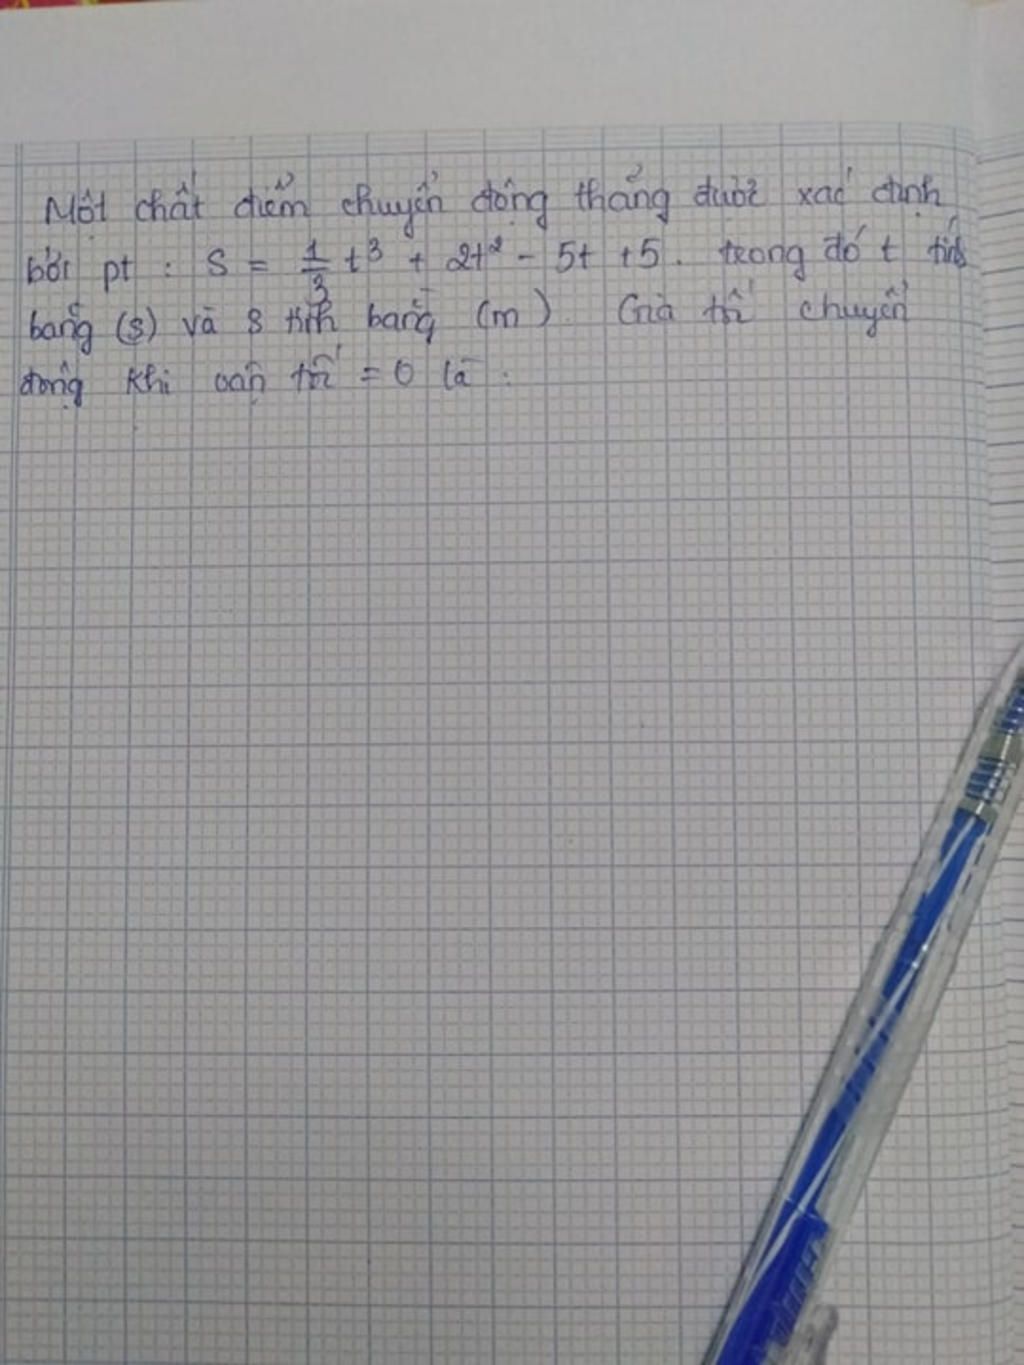 Một chất điểm chuyển động thẳng được xác định
bởi pt : S = 1/3 t³ + 2t² - 5t + 5. trong đó t tính
bằng (s) và S tính bằng (m). Gia tốc chuyển
động khi vận tốc = 0 là :